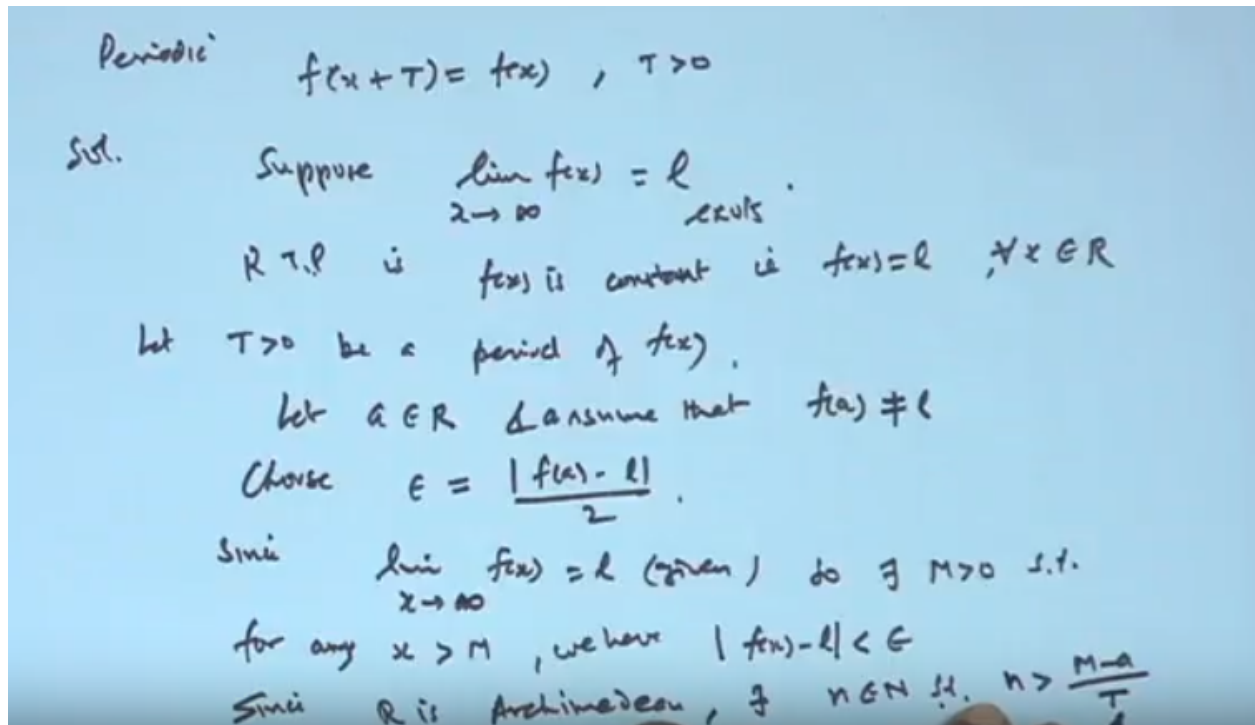 Periodic f(x+T) = f(x) , T>0
Sol. Suppose lim f(x) = l exists .
x→∞
R.T.P is f(x) is constant ie f(x)=l , ∀x ∈ R
Let T>0 be a period of f(x).
Let a ∈ R & assume that f(a) ≠ l
Choose ∈ = |f(a) - l| / 2 .
Since lim f(x) = l (given) so ∃ M>0 s.t.
x→∞
for any x > M , we have |f(x)-l| < ∈
Since R is Archimedean, ∃ n∈N s.t. n > M-a / T